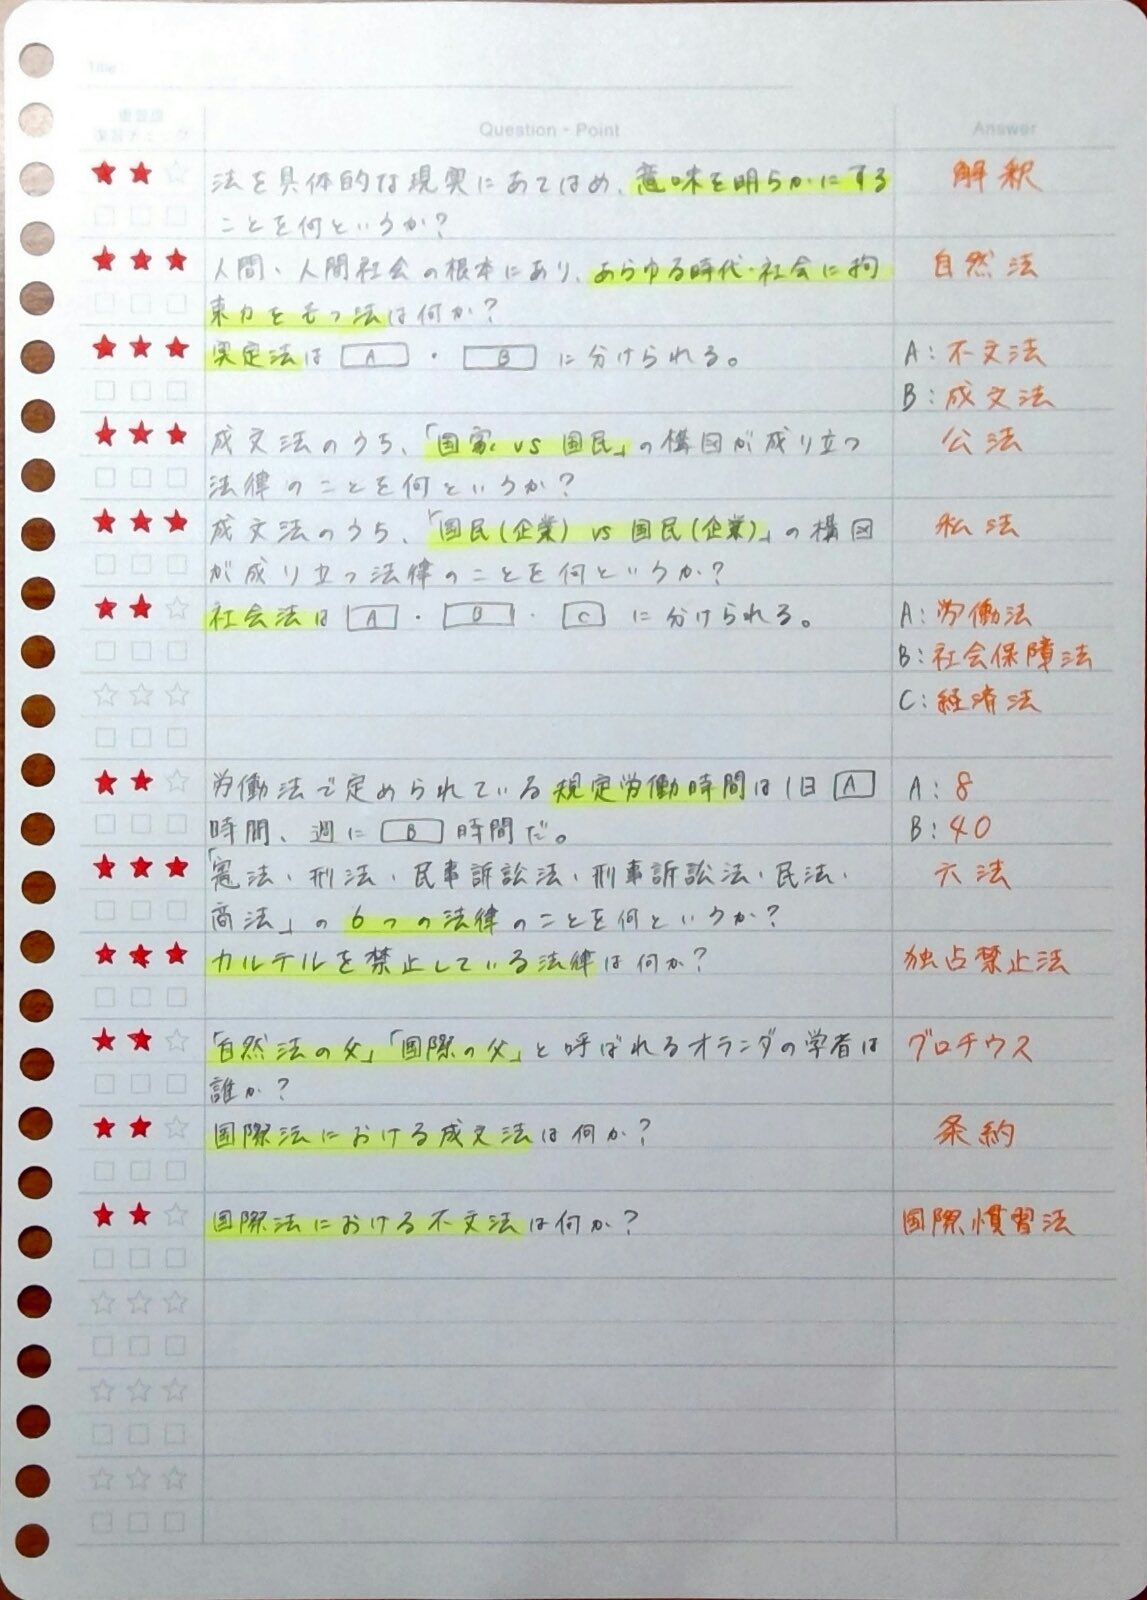 Title
重要度 Question - Point Answer
復習チェック
★★☆ 法を具体的な現実にあてはめ、意味を明らかにする 解釈
□□□ ことを何というか?
★★★ 人間・人間社会の根本にあり、あらゆる時代・社会に拘 自然法
□□□ 束力をもつ法は何か?
★★★ 実定法は A ・ B に分けられる。 A:不文法
□□□ B:成文法
★★★ 成文法のうち、「国家 vs 国民」の構図が成り立つ 公法
□□□ 法律のことを何というか?
★★★ 成文法のうち、「国民(企業) vs 国民(企業)」の構図 私法
□□□ が成り立つ法律のことを何というか?
★★☆ 社会法は A ・ B ・ C に分けられる。 A:労働法
□□□ B:社会保障法
☆☆☆ C:経済法
□□□
★★☆ 労働法で定められている規定労働時間は1日 A A:8
□□□ 時間、週に B 時間だ。 B:40
★★★ 「憲法・刑法・民事訴訟法・刑事訴訟法・民法・ 六法
□□□ 商法」の6つの法律のことを何というか?
★★★ カルテルを禁止している法律は何か? 独占禁止法
□□□
★★☆ 「自然法の父」「国際の父」と呼ばれるオランダの学者は グロチウス
□□□ 誰か?
★★☆ 国際法における成文法は何か? 条約
□□□
★★☆ 国際法における不文法は何か? 国際慣習法
□□□
☆☆☆
□□□
☆☆☆
□□□
☆☆☆
□□□